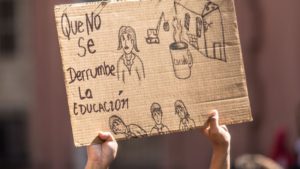 Que No
Se
Derrumbe
La
EDUCACIÓN